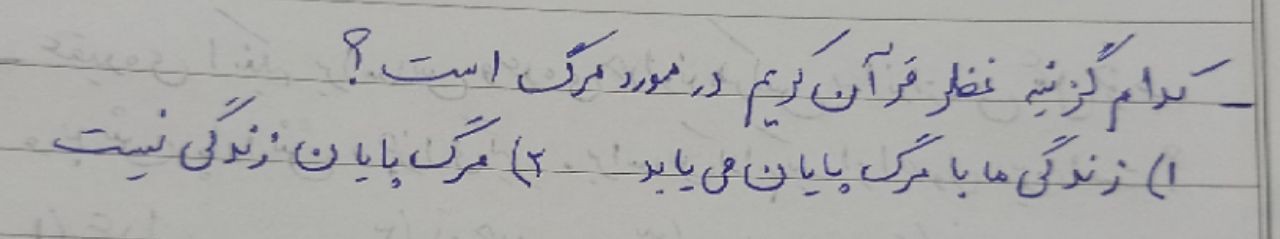 - کدام گزینه نظر قرآن کریم در مورد مرگ است؟
۱) زندگی ما با مرگ پایان می یابد ۲) مرگ پایان زندگی نیست